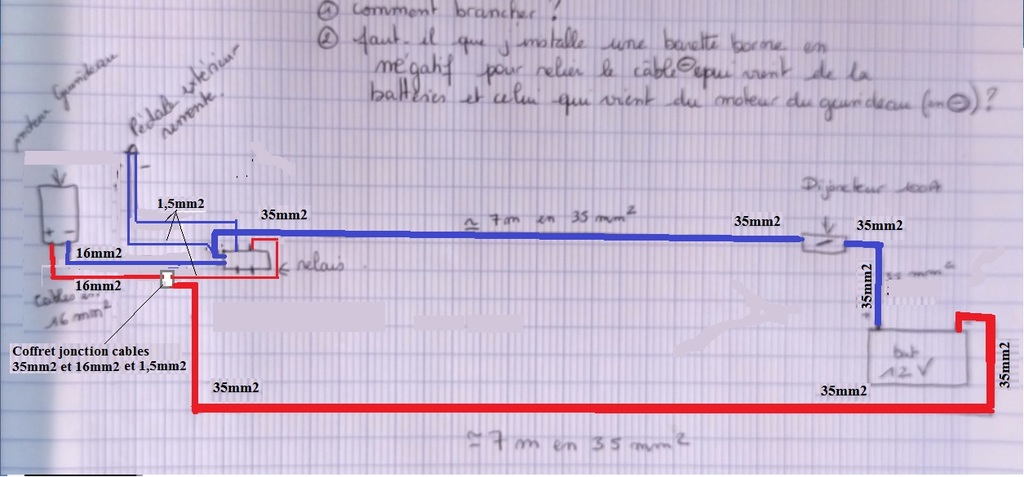 ① comment brancher ?
② faut-il que j'installe une barette borne en
négatif pour relier le câble ⊖ qui vient de la
battéries et celui qui vient du moteur du guindeau (en ⊖) ?
moteur Guindeau
Pédale extérieur
remonte
Dijoncteur 100A
1,5mm2
35mm2
≃ 7m en 35 mm²
35mm2
35mm2
+ -
16mm2
← relais
16mm2
35mm2
35 mm²
Cables en
16 mm²
Coffret jonction cables
35mm2 et 16mm2 et 1,5mm2
bat
12V
35mm2
35mm2
35mm2
≃ 7 m en 35 mm²